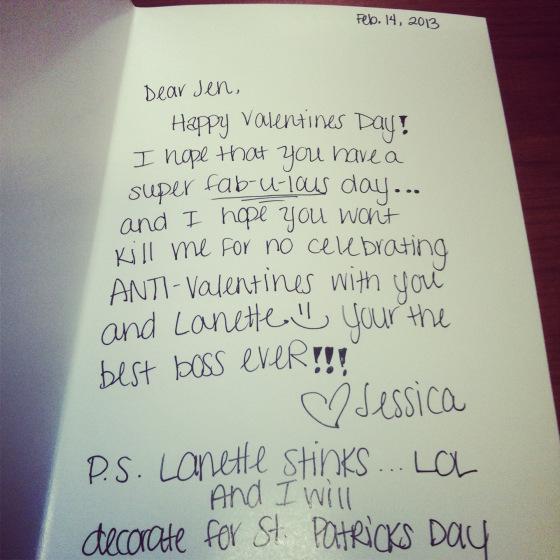 Feb. 14, 2013
Dear Jen,
Happy Valentines Day!
I hope that you have a
super fab-u-lous day...
and I hope you wont
kill me for no celebrating
ANTI-Valentines with you
and Lanette. :) Your the
best boss ever!!!
♡ Jessica
P.S. Lanette stinks... LOL
And I will
decorate for St. Patricks Day